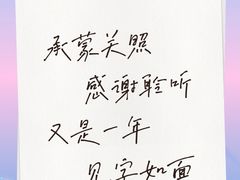 承蒙关照
感谢聆听
又是一年
见字如面